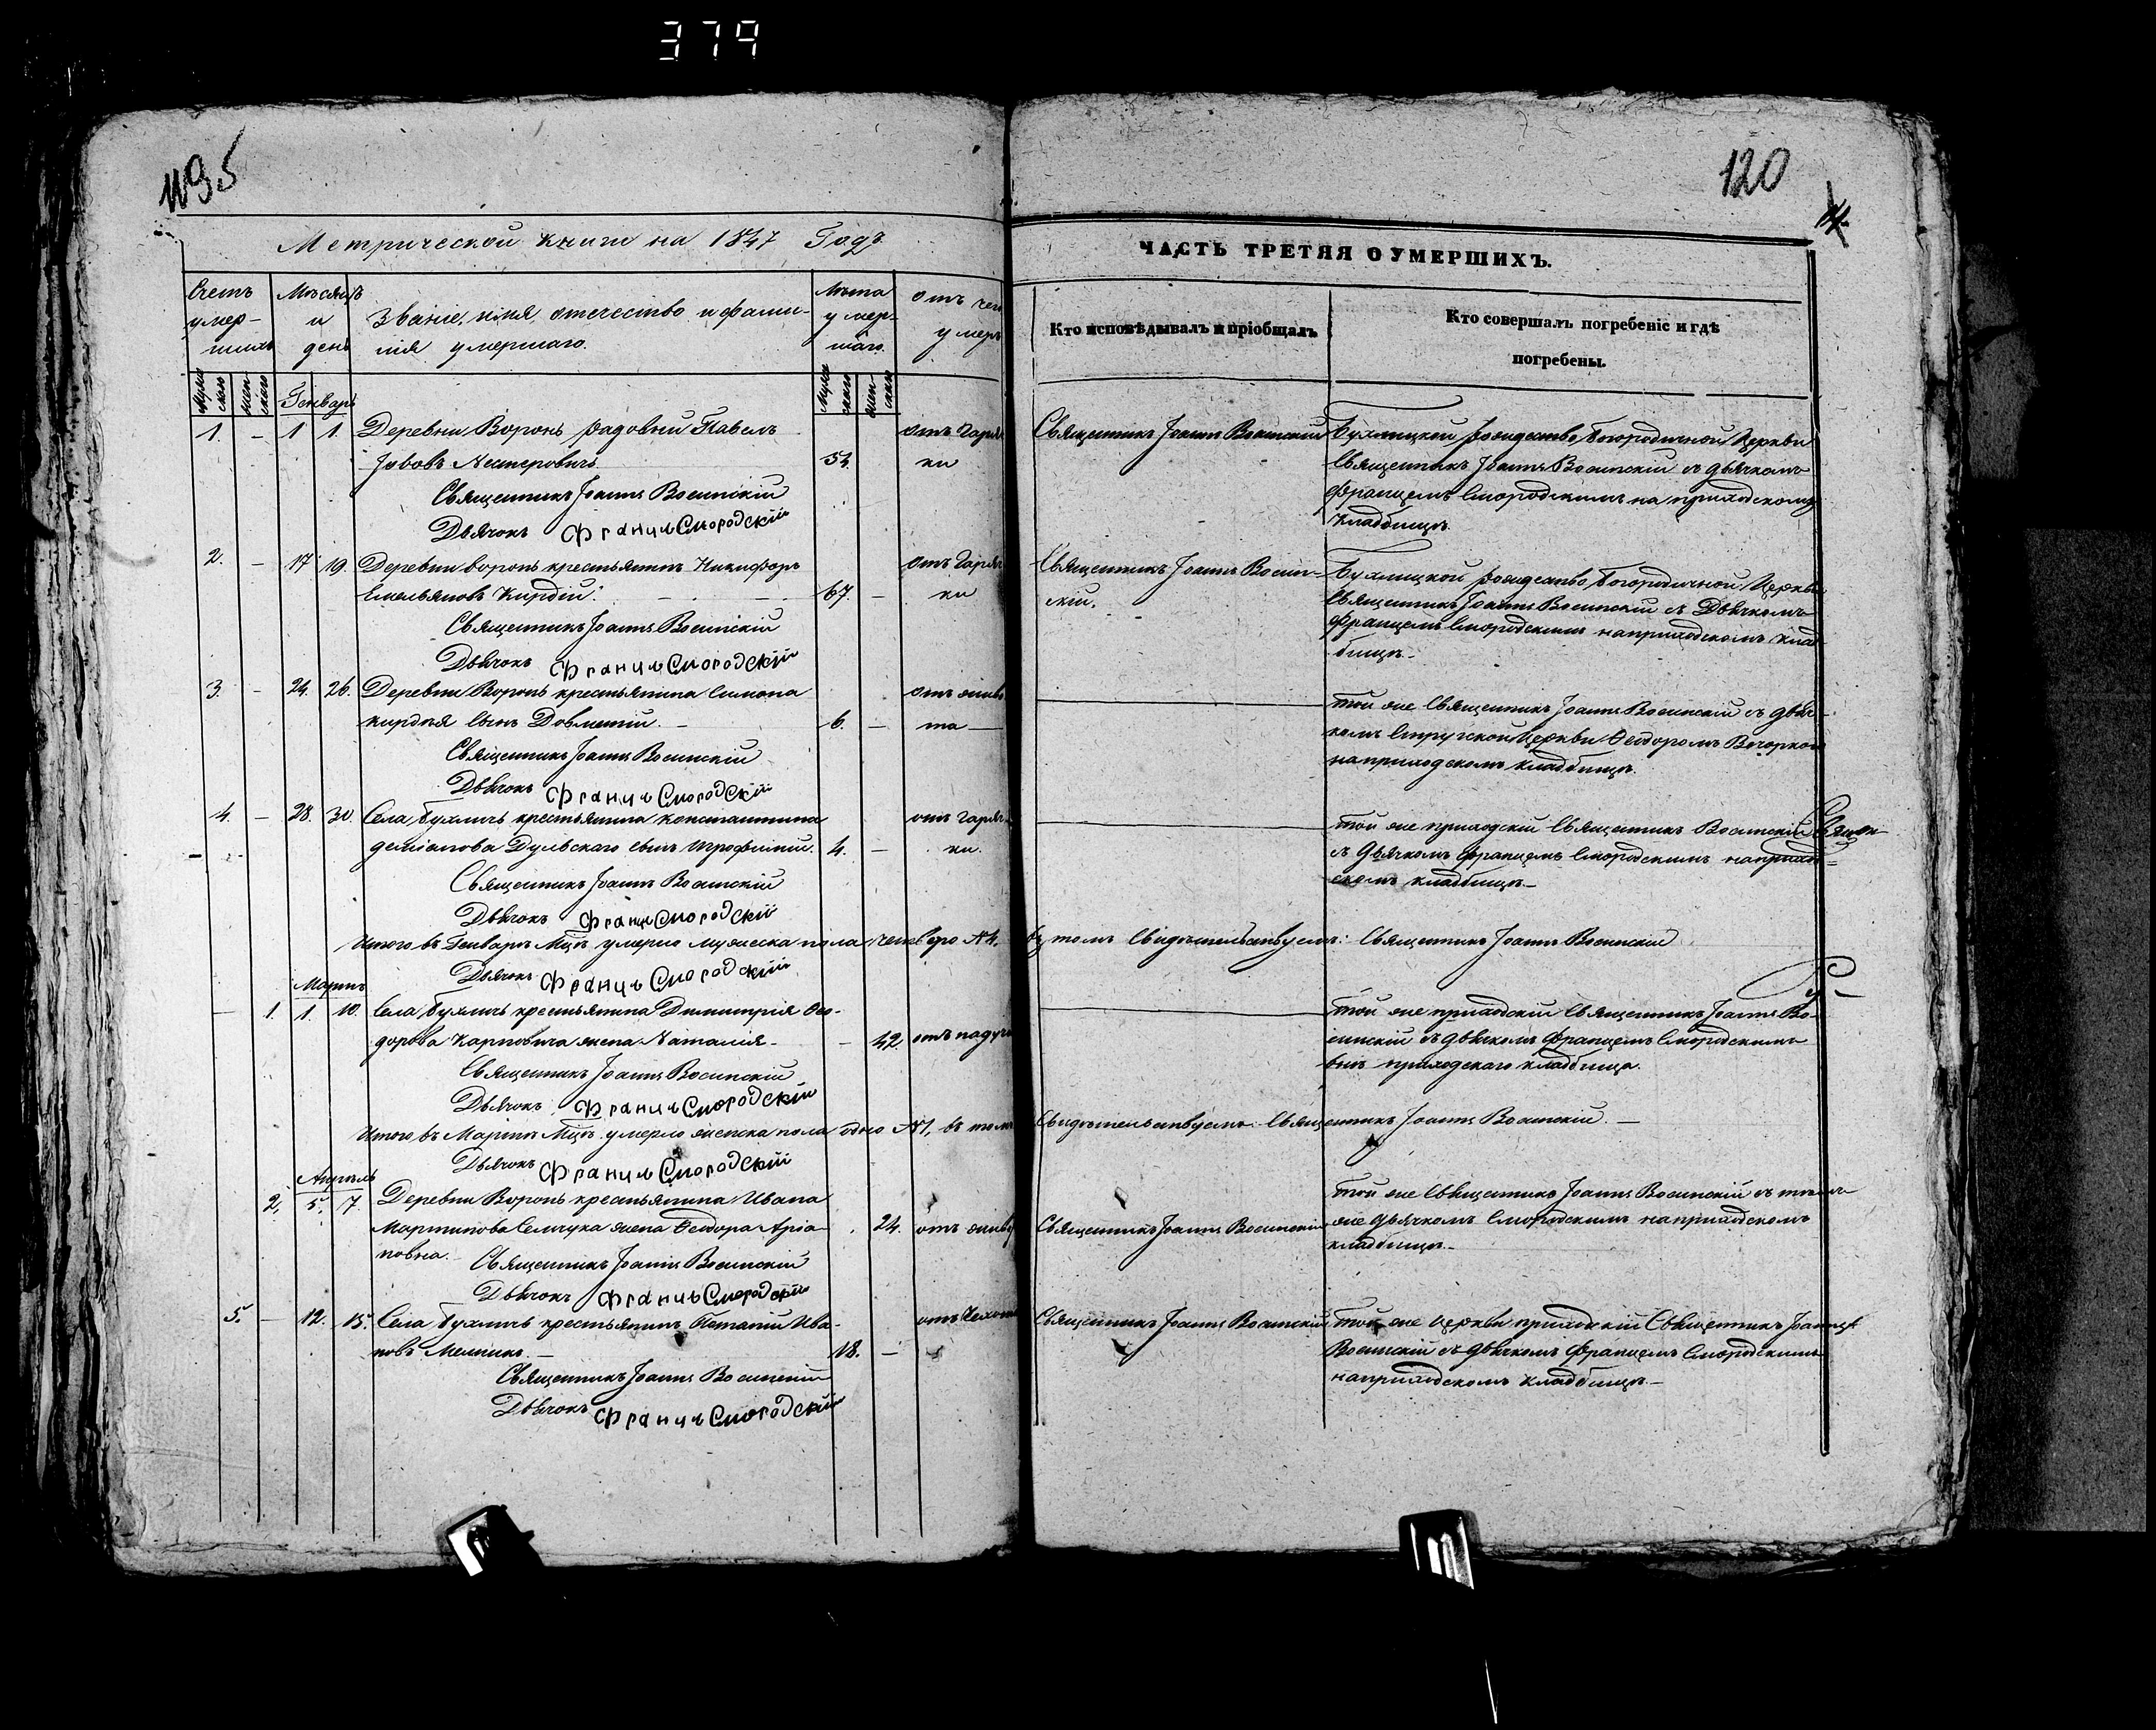 379
1195
120
Метрической книги на 1847 Годъ
ЧАСТЬ ТРЕТЯЯ О УМЕРШИХЪ.
Счетъ умер-шихъ
Мѣсяцъ и день
Званіе, имя, отечество и фами-
лія умершаго.
Лѣта умер-шаго.
отъ чего умеръ
Кто исповѣдывалъ и пріобщалъ
Кто совершалъ погребеніе и гдѣ
погребены.
Муже ского
жен-ского
Генварь
Муже ского
жен-ского
1. – 1 1. Деревни Воронь радовни Павелъ
Іововъ Нестеровичъ 54.
отъ Гаряч ки
Священникъ Іоаннъ Восинскій
Дьячокъ Францъ Смородскій
Священникъ Іоаннъ Восинскій
Бухлицкой рождество Богородичной Церкви
Священникъ Іоаннъ Восинскій съ дьячкомъ
Францемъ Смородскимъ на приходскомъ
кладбищѣ.
2. – 17 19. Деревни Воронь крестьянинъ Никифоръ
Емельяновъ Кирдій. 67. –
отъ Гаряч ки
Священникъ Іоаннъ Восинскій
Дьячокъ Францъ Смородскій
Священникъ Іоаннъ Восин-
скій.
Бухлицкой рождество Богородичной Церкви
Священникъ Іоаннъ Восинскій съ Дьячкомъ
Францемъ Смородскимъ на приходскомъ клад
бищѣ.
3. – 24. 26. Деревни Воронь крестьянина Симона
кирдѣя сынъ Довметій. – 6. –
та –
Священникъ Іоаннъ Восинскій
Дьячокъ Францъ Смородскій
той же Священникъ Іоаннъ Восинскій съ дьяч-
комъ Стружской Церкви Ѳеодоромъ Вечоркою
на приходскомъ кладбищѣ.
4. – 28. 30. Села Бухличь крестьянина Константина
деміанова Дульскаго сынъ 4. –
отъ Гаряч ки.
Священникъ Іоаннъ Восинскій
Дьячокъ Францъ Смородскій
той же приходскій Священникъ Восинскій
съ дьячкомъ Францемъ Смородскимъ на приход=
скомъ кладбищѣ. –
Итого въ Генварѣ Мцѣ умерло мужеска пола четверо №4. въ томъ свидѣтельствуемъ: Священникъ Іоаннъ Восинскій
Дьячокъ Францъ Смородскій
Мартъ
– 1. 1. 10. Села Бухличь крестьянина Димитрія Ѳео-
дорова Карповича жена Наталія – – 42.
отъ падуч
Священникъ Іоаннъ Восинскій
Дьячокъ Францъ Смородскій
той же приходскій Священникъ Іоаннъ Во-
синскій съ дьячкомъ Францемъ Смородскимъ
внѣ приходскаго кладбища.
Итого въ Мартѣ Мцѣ умерло женска пола одно №1, въ томъ Свидѣтельствуемъ Священникъ Іоаннъ Восинскій. –
Дьячокъ Францъ Смородскій
Апрѣль
2. 5. 7. Деревни Воронь крестьянина Ивана
Мартинова Семчука жена Ѳеодора Аріа-
новна. 24.
Священникъ Іоаннъ Восинскій
Дьячокъ Францъ Смородскій
Священникъ Іоаннъ Восинскій
той же Священникъ Іоаннъ Восинскій съ тѣмъ
же дьячкомъ Смородскимъ на приходскомъ
кладбищѣ. –
5. – 12. 15. Села Бухличь крестьянинъ Потапій Ива-
новъ Мельникъ. – 18. –
Священникъ Іоаннъ Восинскій
Дьячокъ Францъ Смородскій
Священникъ Іоаннъ Восинскій
той же церкви приходскій Священникъ Іоаннъ
Восинскій съ дьячкомъ Францемъ Смородскимъ
на приходскомъ кладбищѣ. –